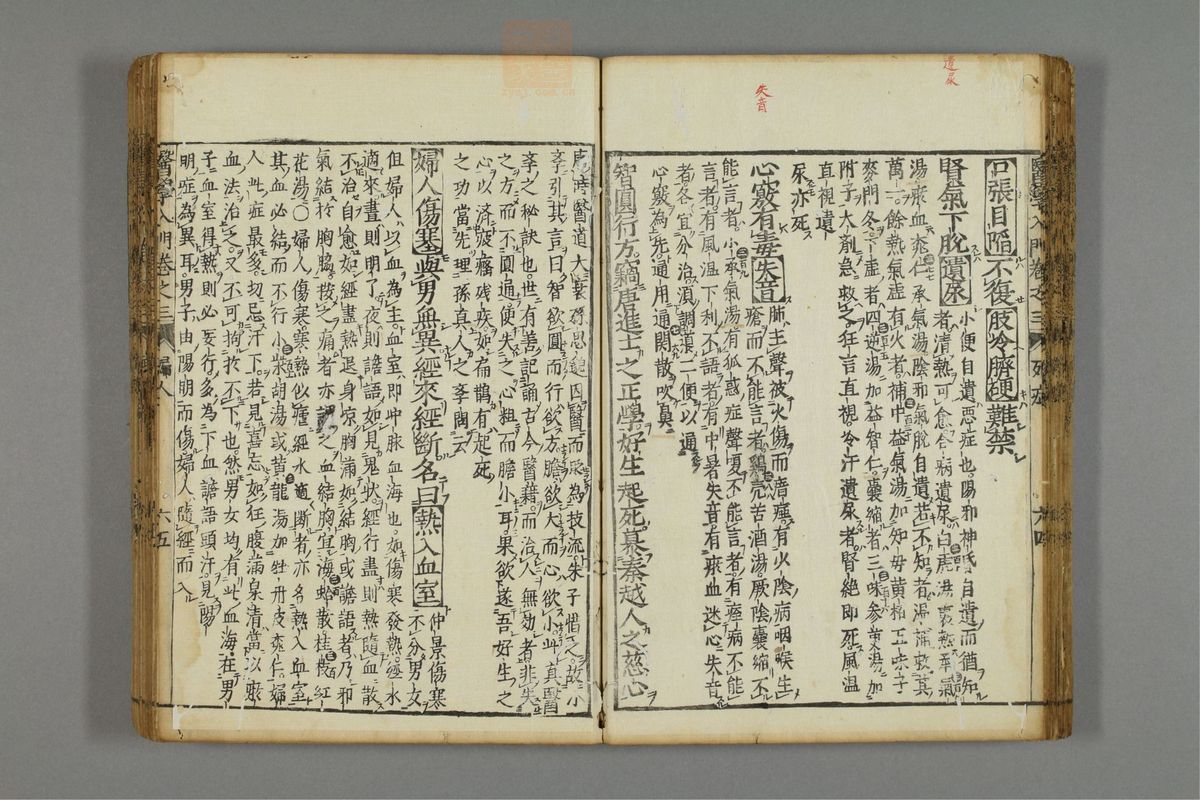 遺尿
失音
口張目隨不復肢冷臍硬難禁
腎氣下脫遺尿小便自遺惡症也陽邪神昏自遺而猶知
者清熱可愈合病遺尿白虎湯裏熱
湯瘀血桃仁承氣湯陰邪氣脫自遺若不知者溫補救其
萬一餘熱氣虛有火者補中益氣湯加知母黃柏五味子
麥門冬下虛者四逆湯加益智仁囊縮者三味參萸湯加
附子大劑急救之狂言直視冷汗遺尿者腎絕即死風溫
直視遺
尿亦死
心竅有毒失音肺主聲被火傷而瘖瘂有火陰病咽喉生
瘡而不能言者雞壳苦酒湯厥陰囊縮不
能言者小承氣湯有狐惑症聲嗄不能言者有痙病不能
言者有風溫下利不語者有中暑失音有瘀血迷心失音
者各宜分治須調渠二便以通
心竅為先通用通關散吹鼻
智圓行方竊唐進士之正學好生起死慕秦越人之慈心
唐時醫道大衰孫思邈因醫而貶為技流朱子惜之故小
斈引其言曰智欲圓而行欲方膽欲大而心欲小此真醫
斈之秘訣也世有善記誦古今醫籍而治人無効者非失
之方而不圓通便失之心粗而膽小耳果欲遂吾好生之
心以济疲癃残疾如扁鵲有起死
之功當先理孫真人之斈問云
婦人傷寒與男無異經來經斷名曰熱入血室仲景傷寒
不分男女
但婦人以血為主血室即冲脉血海也如傷寒發熱經水
適來晝則明了夜則譫語如見鬼状經行盡則熱隨血散
不治自愈如經盡熱退身凉胸滿如結胸或譫語者乃邪
氣結於胸脇按之痛者亦之血結胸宜海蛤散桂枝紅
花湯〇婦人傷寒寒熱似瘧經水適斷者亦名熱入血室
其血必結而不行小柴胡湯或黃龍湯加牡丹皮桃仁婦
人此症最多切忌汗下若見喜忘如狂腹滿屎清當以瘀
血法治之又不可拘於不下也然男女均有此血海在男
子血室得熱則必妄行多為下血譫語頭汗見陽
明症為異耳男子由陽明而傷婦人隨經而入
醫學入門卷之三 婦人 六五